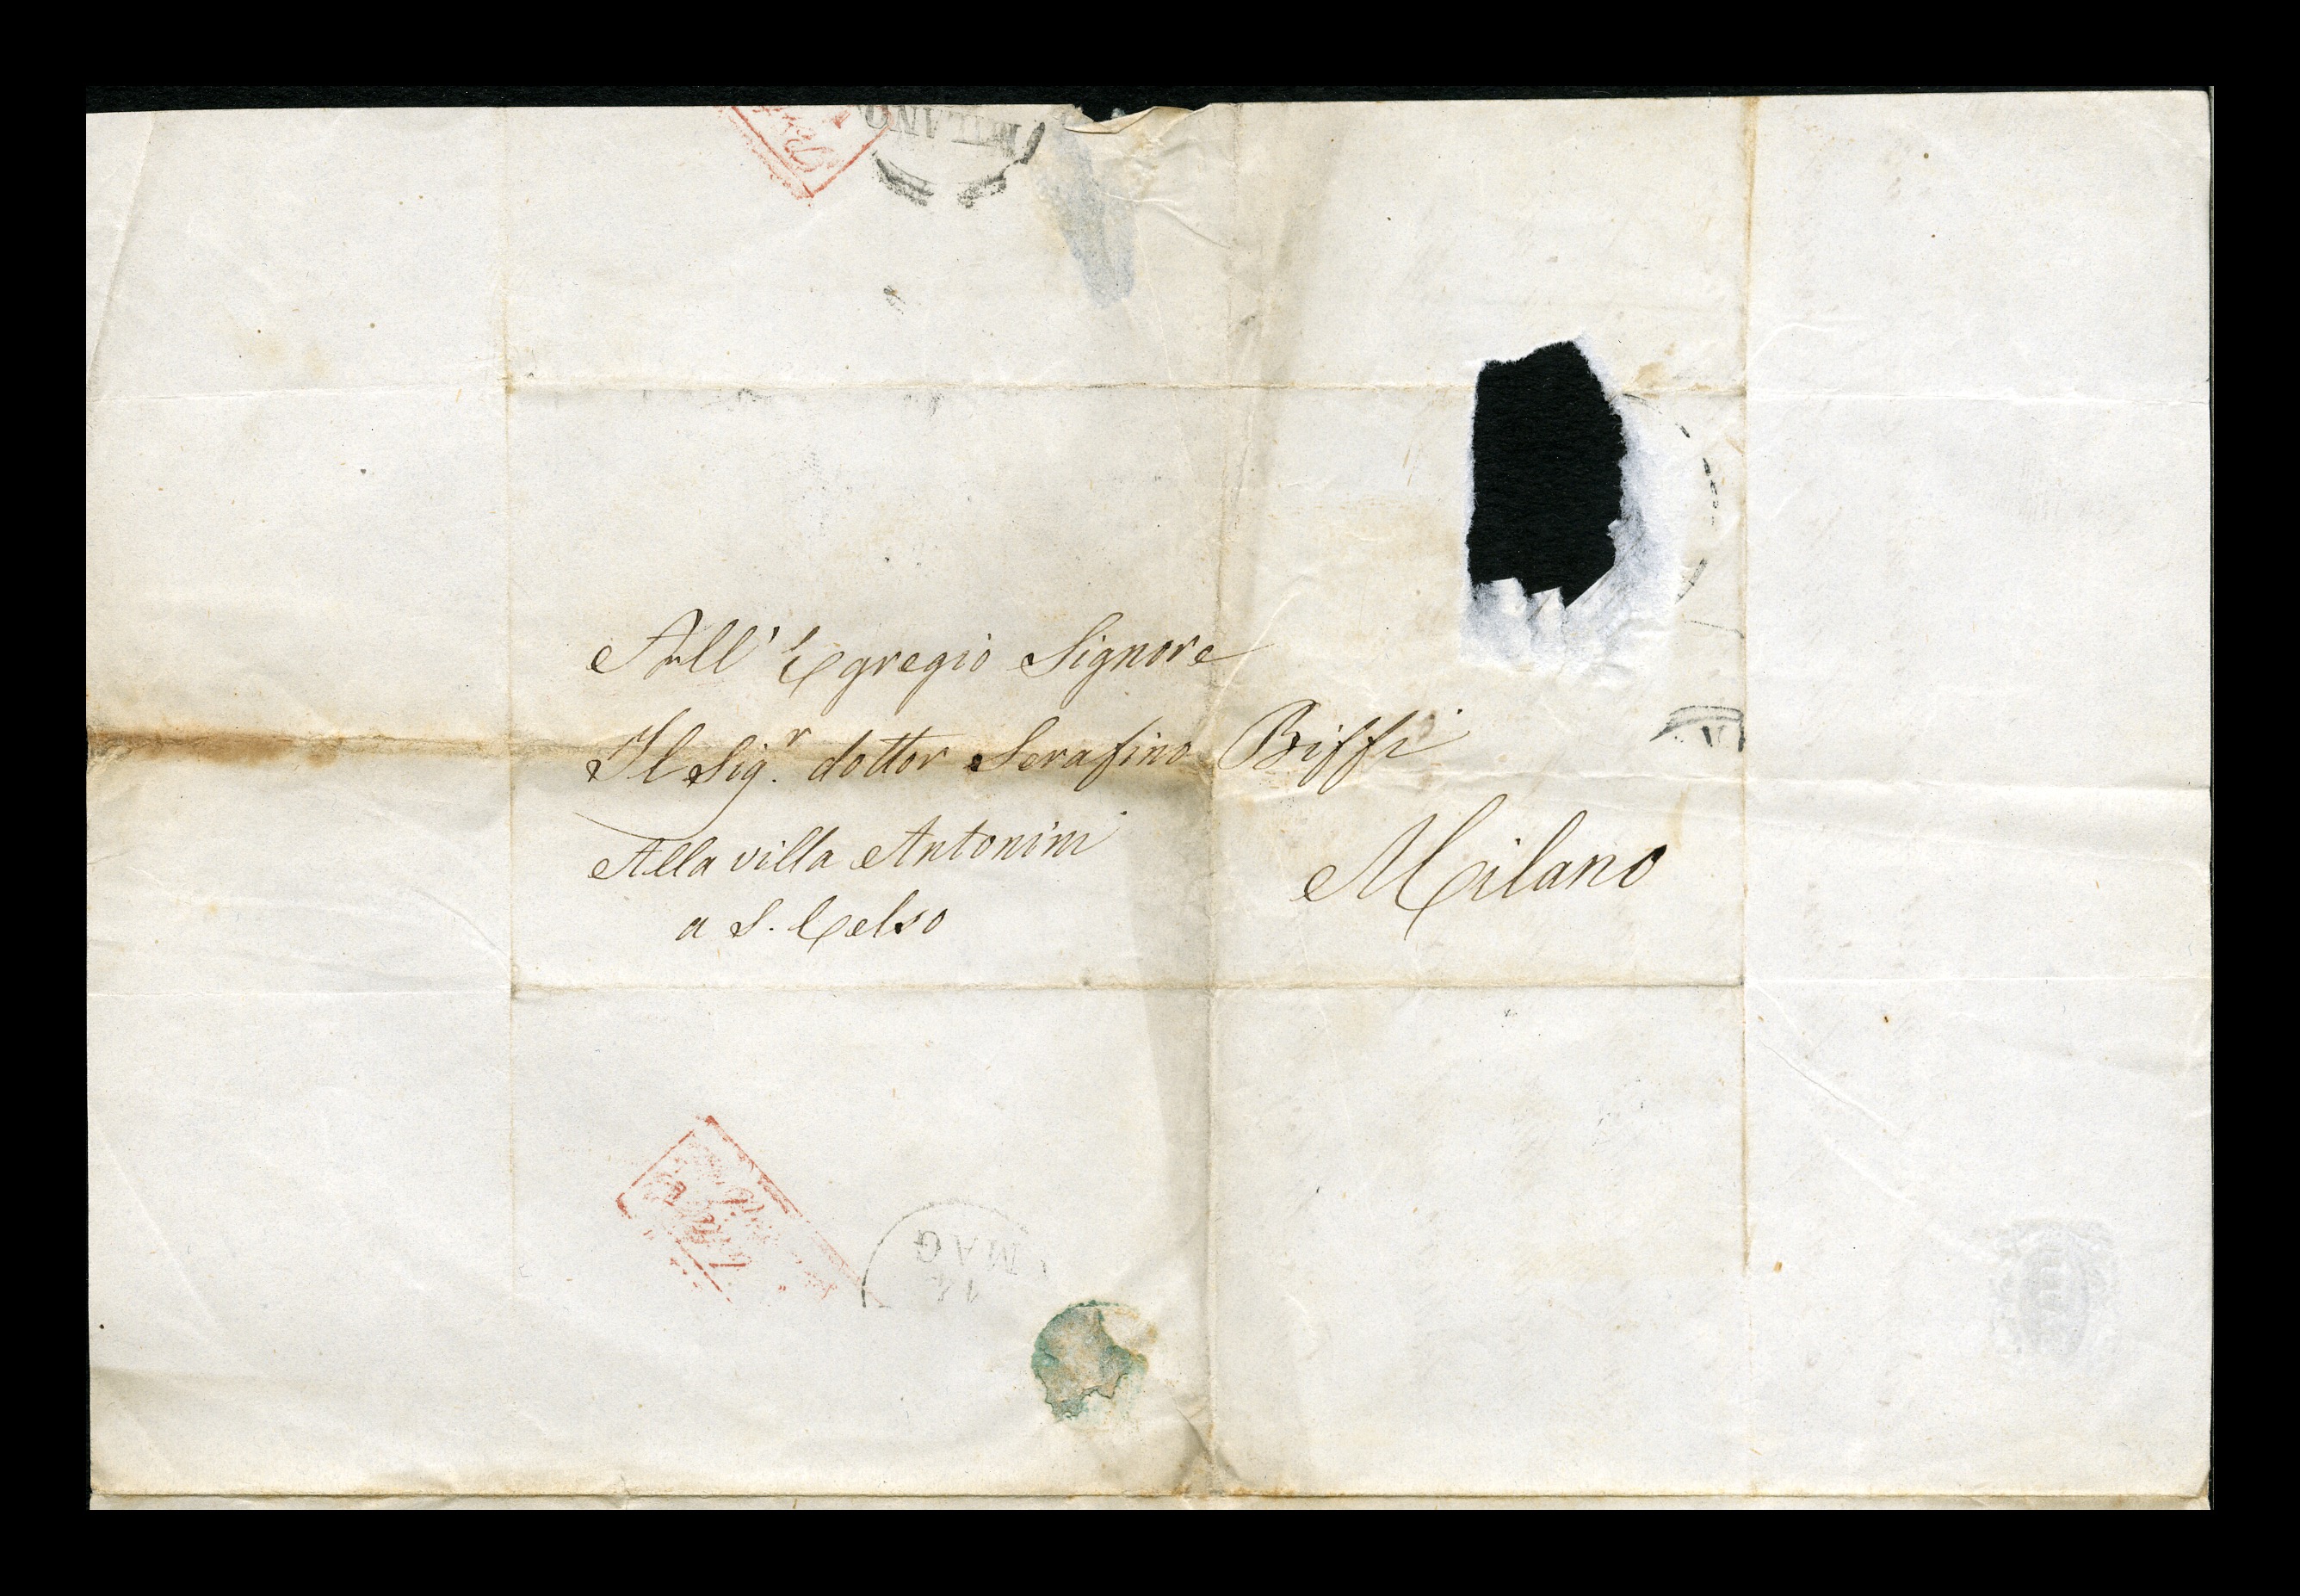 MILANO
All' Egregio Signore
Il Sig.r dottor Serafino Biffi
Alla villa Antonini
a S. Celso
Milano
14
MAG